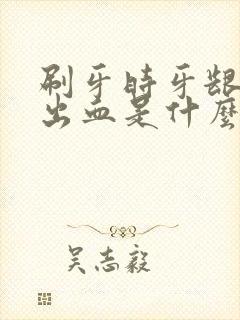 刷牙時牙龈
出血是什麼
吴志毅